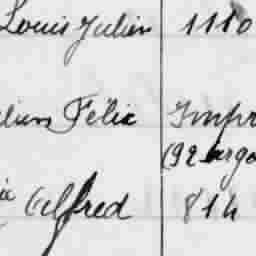 Louis Julien 1180
lien Félix Impr
(92 arga
Alfred 814